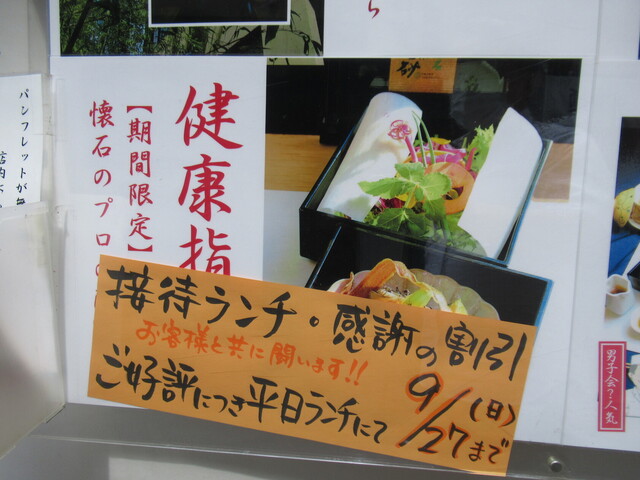 ら
パンフレットが無
店内に
健康指
【期間限定】
懐石のプロ
接待ランチ。感謝の割引
お客様と共に闘います!!
ご好評につき平日ランチにて
9/27(日)まで
男子会?人気